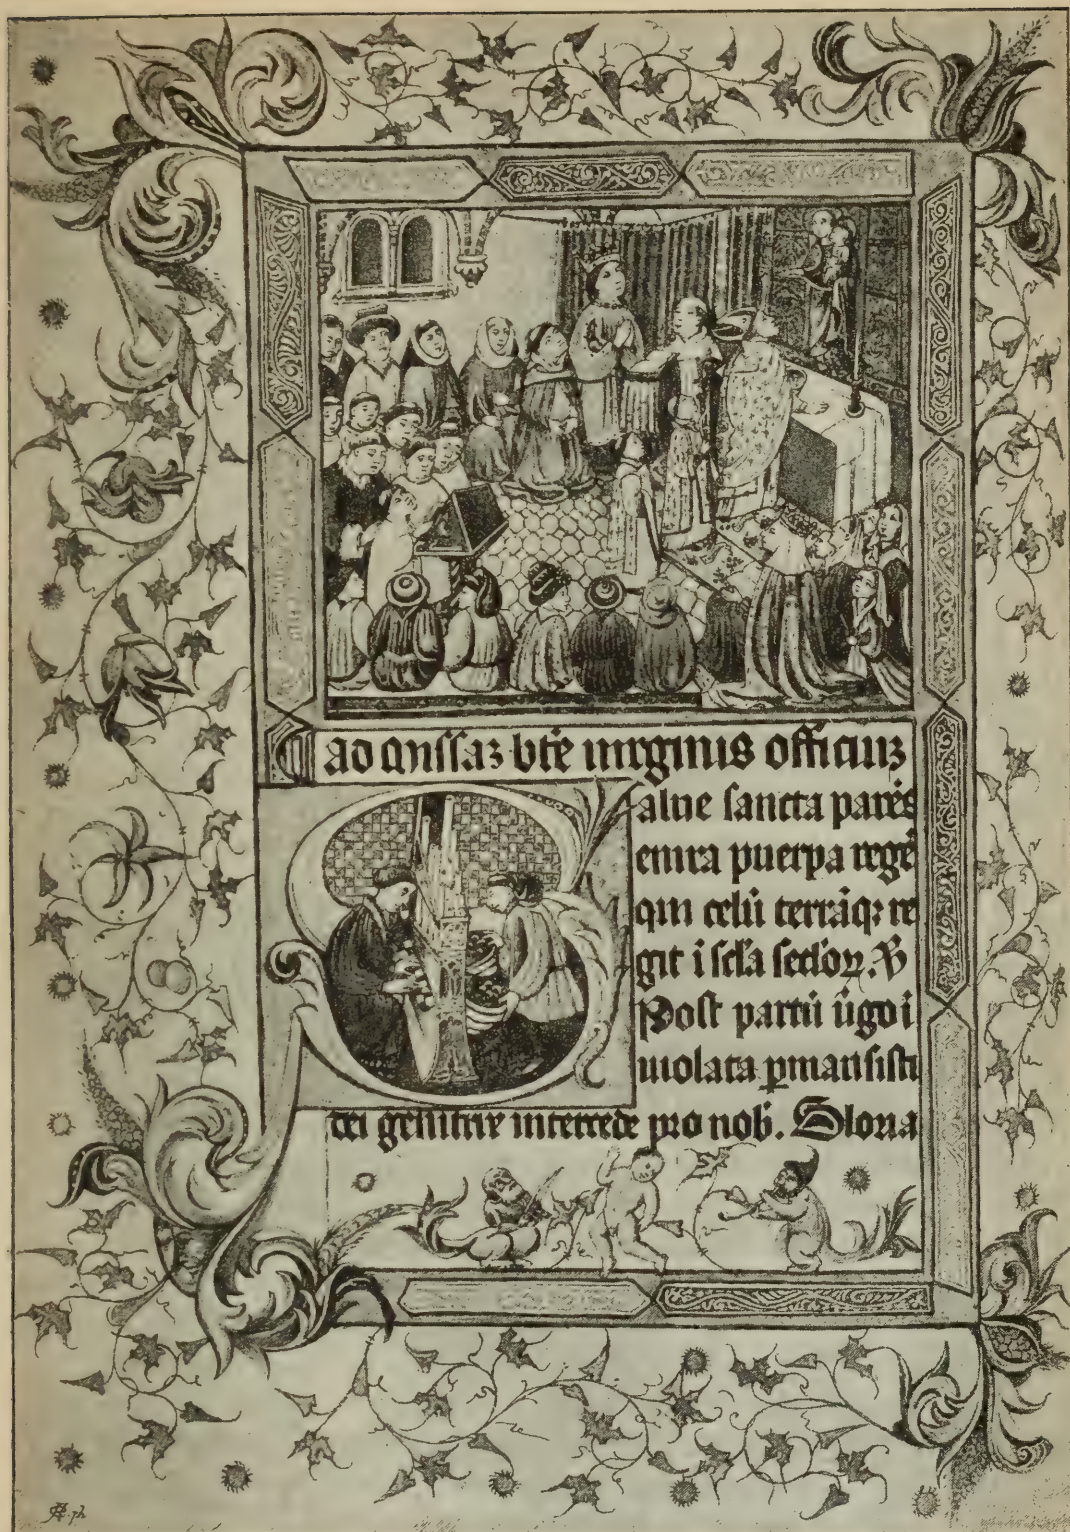 ad missaʒ btē virginis officiuʒ
Salue sancta parēs
enixa puerpa regē
qui celū terrāqꝫ re
git i scl̄a sclōꝝ. ℣
Post partū ūgo i
uiolata ꝑmansisti
dei genitrix intercede pro nob̄. Gloria